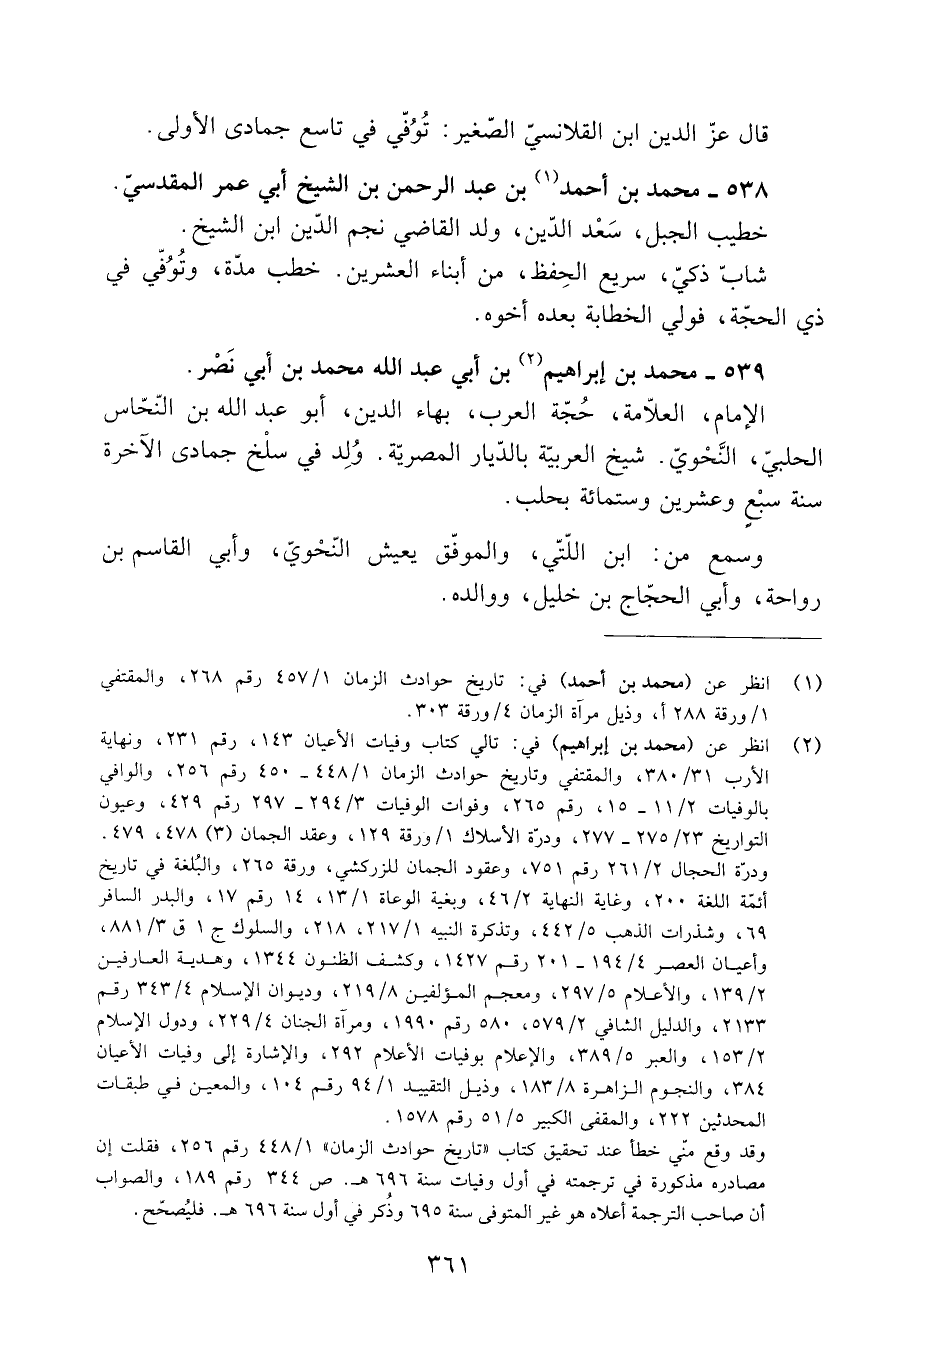 قال عزّ الدين ابن القلانسيّ الصّغير: تُوُفّي في تاسع جمادى الأولى.
٥٣٨ ـ محمد بن أحمد(١) بن عبد الرحمن بن الشيخ أبي عمر المقدسيّ.
خطيب الجبل، سَعْد الدّين، ولد القاضي نجم الدّين ابن الشيخ.
شابّ ذكيّ، سريع الحِفظ، من أبناء العشرين. خطب مدّة، وتُوُفّي في
ذي الحجّة، فولي الخطابة بعده أخوه.
٥٣٩ ـ محمد بن إبراهيم(٢) بن أبي عبد الله محمد بن أبي نَصْر.
الإمام، العلاّمة، حُجّة العرب، بهاء الدين، أبو عبد الله بن النّحّاس
الحلبيّ، النَّحْويّ. شيخ العربيّة بالدّيار المصريّة. وُلِد في سلْخ جمادى الآخرة
سنة سبْعٍ وعشرين وستمائة بحلب.
وسمع من: ابن اللّتّي، والموفّق يعيش النّحْويّ، وأبي القاسم بن
رواحة، وأبي الحجّاج بن خليل، ووالده.
(١) انظر عن (محمد بن أحمد) في: تاريخ حوادث الزمان ٤٥٧/١ رقم ٢٦٨، والمقتفي
١/ورقة ٢٨٨ أ، وذيل مرآة الزمان ٤/ورقة ٣٠٣.
(٢) انظر عن (محمد بن إبراهيم) في: تالي كتاب وفيات الأعيان ١٤٣، رقم ٢٣١، ونهاية
الأرب ٣٨٠/٣١، والمقتفي وتاريخ حوادث الزمان ٤٤٨/١ ـ ٤٥٠ رقم ٢٥٦، والوافي
بالوفيات ١١/٢ ـ ١٥، رقم ٢٦٥، وفوات الوفيات ٢٩٤/٣ ـ ٢٩٧ رقم ٤٢٩، وعيون
التواريخ ٢٧٥/٢٣ ـ ٢٧٧، ودرّة الأسلاك ١/ورقة ١٢٩، وعقد الجمان (٣) ٤٧٨، ٤٧٩.
ودرّة الحجال ٢٦١/٢ رقم ٧٥١، وعقود الجمان للزركشي، ورقة ٢٦٥، والبُلغة في تاريخ
أئمّة اللغة ٢٠٠، وغاية النهاية ٤٦/٢، وبغية الوعاة ١٣/١، ١٤ رقم ١٧، والبدر السافر
٦٩، وشذرات الذهب ٤٤٢/٥، وتذكرة النبيه ٢١٧/١، ٢١٨، والسلوك ج ١ ق ٨٨١/٣،
وأعيان العصر ١٩٤/٤ ـ ٢٠١ رقم ١٤٢٧، وكشف الظنون ١٣٤٤، وهدية العارفين
١٣٩/٢، والأعلام ٢٩٧/٥، ومعجم المؤلفين ٢١٩/٨، وديوان الإسلام ٣٤٣/٤ رقم
٢١٣٣، والدليل الشافي ٥٧٩/٢، ٥٨٠ رقم ١٩٩٠، ومرآة الجنان ٢٢٩/٤، ودول الإسلام
١٥٣/٢، والعبر ٣٨٩/٥، والإعلام بوفيات الأعلام ٢٩٢، والإشارة إلى وفيات الأعيان
٣٨٤، والنجوم الزاهرة ١٨٣/٨، وذيل التقييد ٩٤/١ رقم ١٠٤، والمعين في طبقات
المحدثين ٢٢٢، والمقفى الكبير ٥١/٥ رقم ١٥٧٨.
وقد وقع منّي خطأ عند تحقيق كتاب «تاريخ حوادث الزمان» ٤٤٨/١ رقم ٢٥٦، فقلت إن
مصادره مذكورة في ترجمته في أول وفيات سنة ٦٩٦ هـ. ص ٣٤٤ رقم ١٨٩، والصواب
أن صاحب الترجمة أعلاه هو غير المتوفى سنة ٦٩٥ وذُكر في أول سنة ٦٩٦ هـ. فليُصحّح.
٣٦١